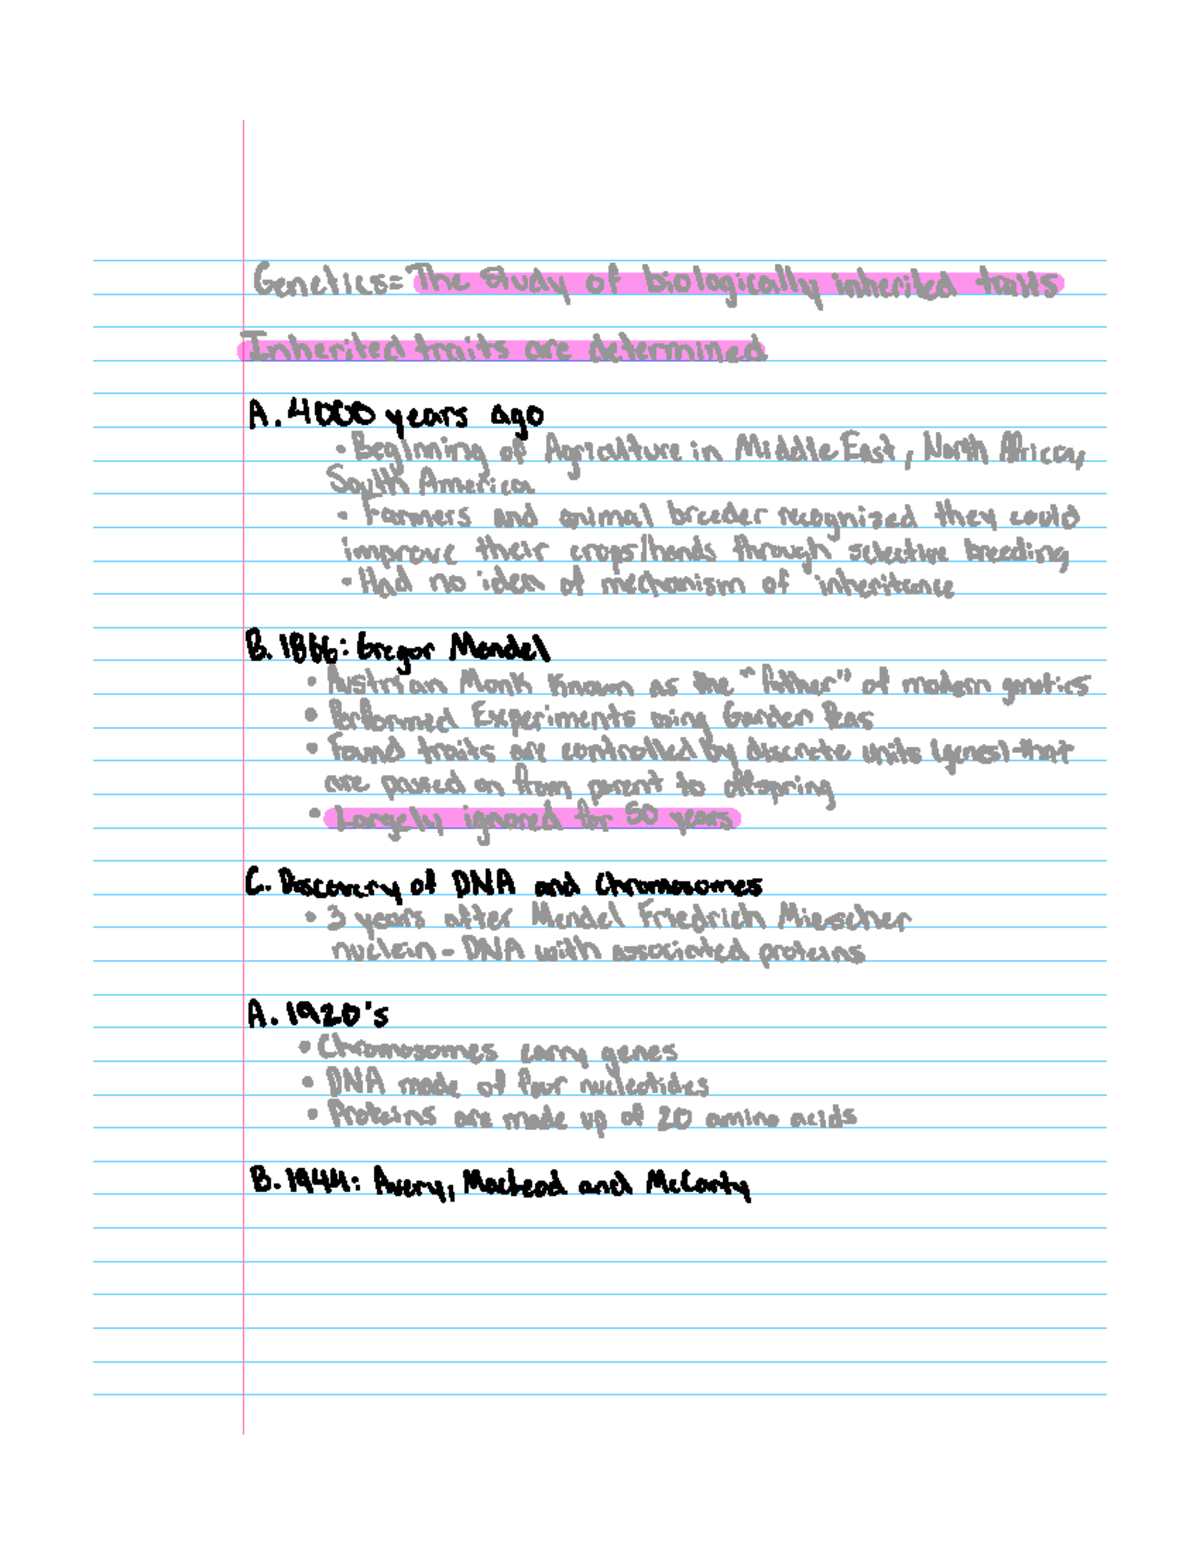 Genetics= The study of biologically inherited traits
Inherited traits are determined
A. 4000 years ago
• Beginning of Agriculture in Middle East, North Africa,
South America
• Farmers and animal breeder recognized they could
improve their crops/herds through selective breeding
• Had no idea of mechanism of inheritance
B. 1866: Gregor Mendel
• Austrian Monk Known as the "father" of modern genetics
• Performed Experiments using Garden Peas
• Found traits are controlled by discrete units (genes) that
are passed on from parent to offspring
• Largely ignored for 50 years
C. Discovery of DNA and Chromosomes
• 3 years after Mendel Friedrich Miescher
nuclein - DNA with associated proteins
A. 1920's
• Chromosomes carry genes
• DNA made of four nucleotides
• Proteins are made up of 20 amino acids
B. 1944: Avery, MacLeod and McCarty